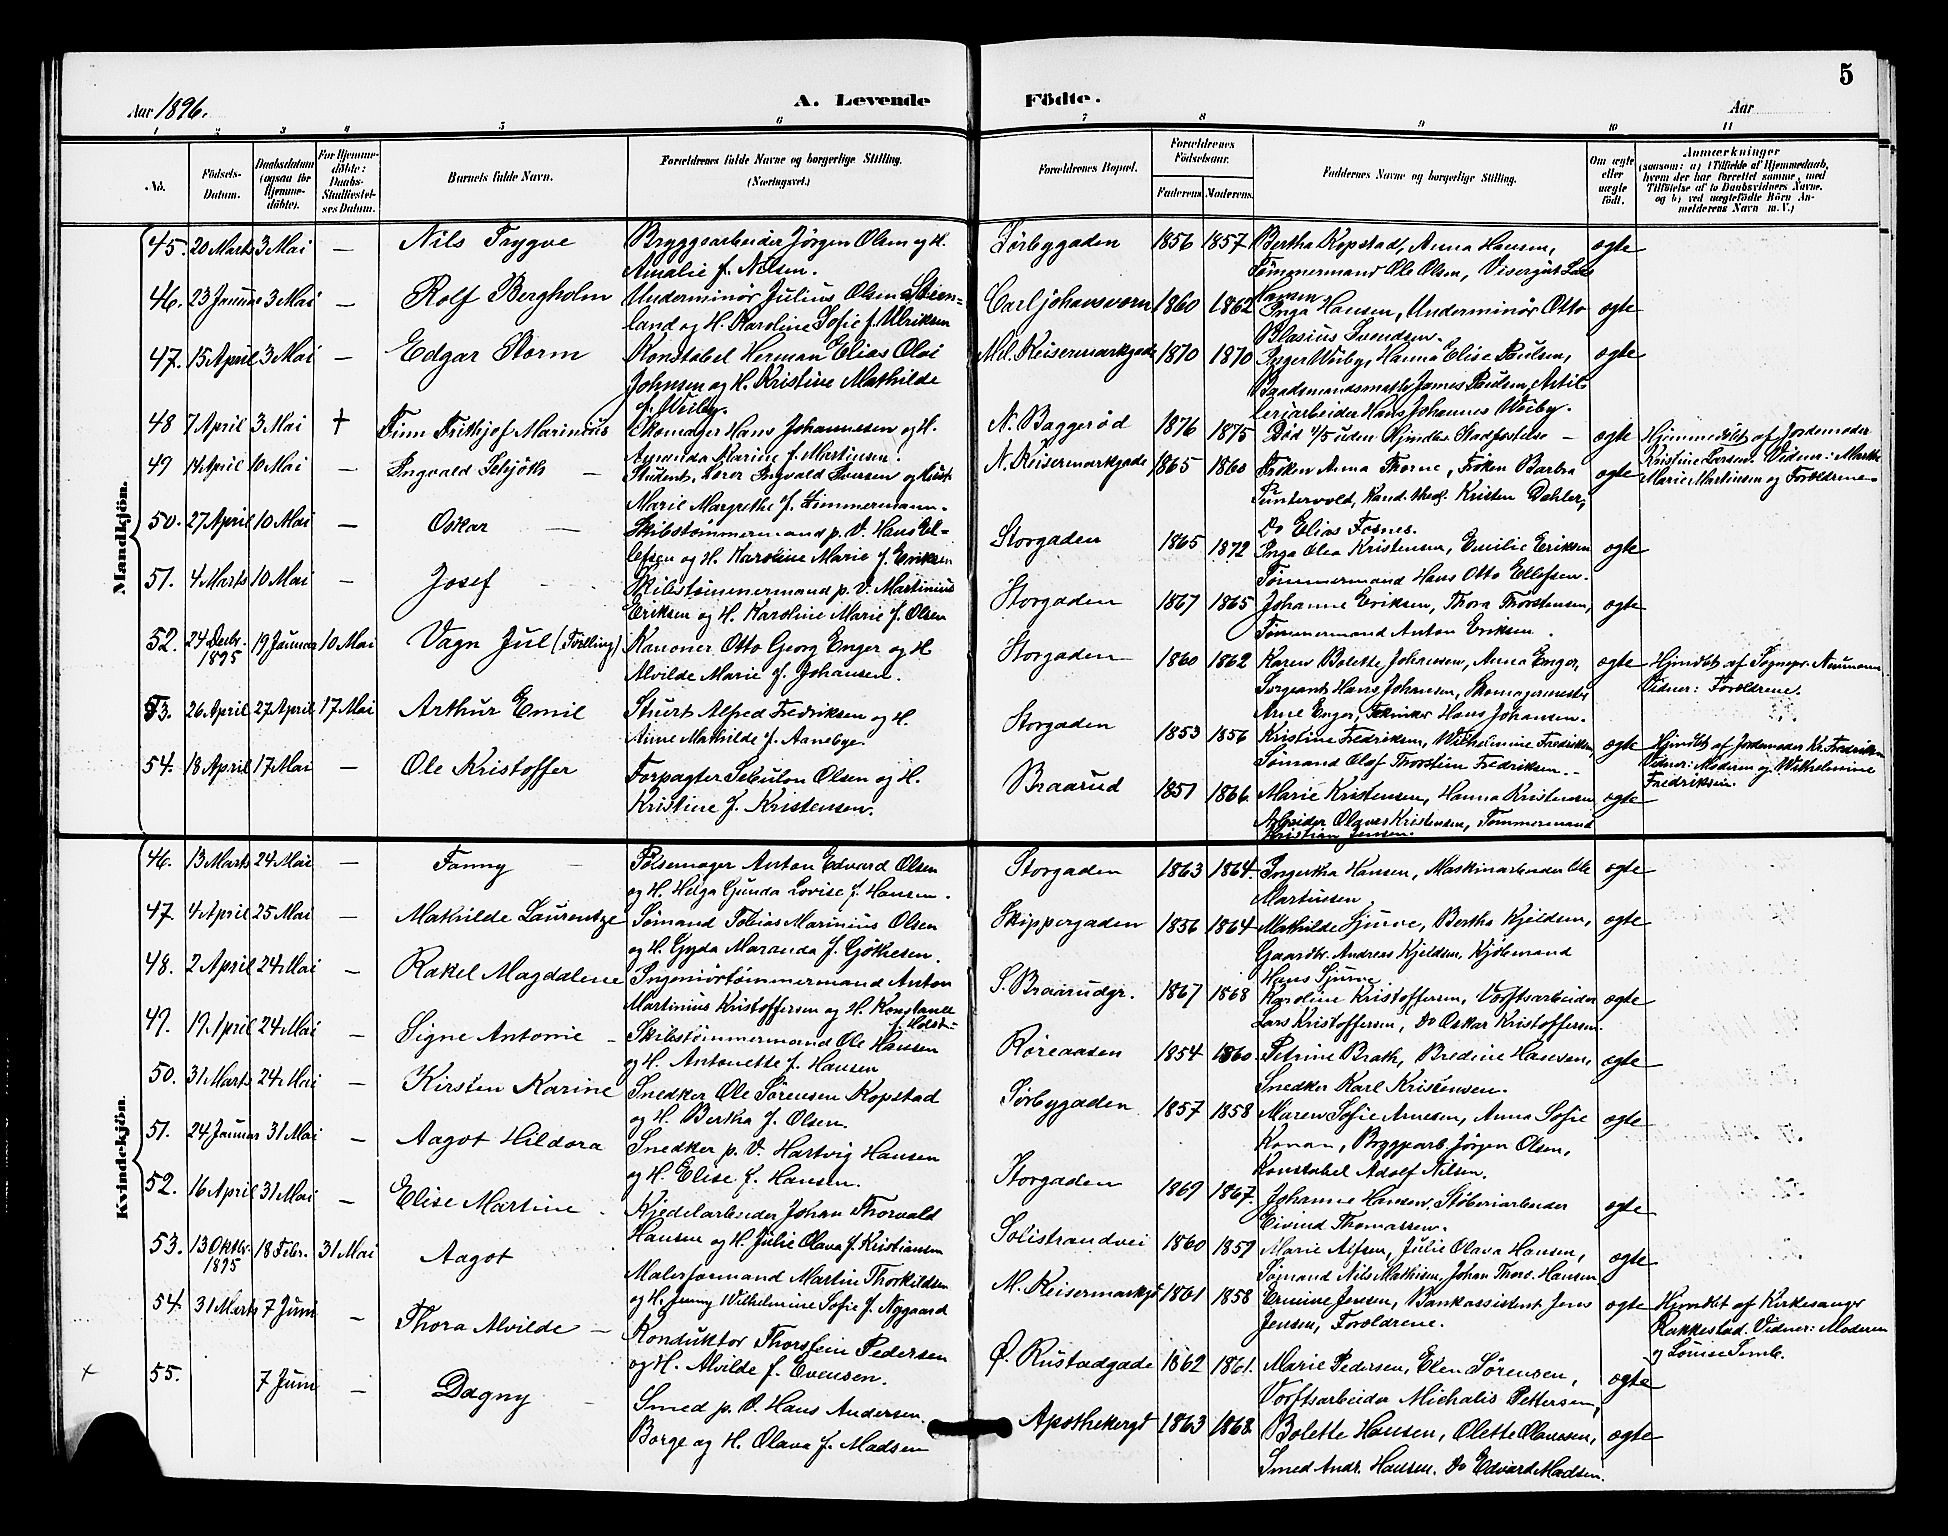 5
Aar 1896.
A. Levende Födte.
Aar
1 2 3 4 5 6 7 8 9 10 11
No.
Födsels-Datum.
Daabsdatum (ogsaa for Hjemme-döbte).
For Hjemme-döbte: Daabs-Stadfæstel-ses Datum.
Barnets fulde Navn.
Forældrenes fulde Navne og borgerlige Stilling. (Næringsvei.)
Forældrenes Bopæl.
Forældrenes Födselsaar.
Faderens. Moderens.
Faddernes Navne og borgerlige Stilling.
Om ægte eller uægte födt.
Anmærkninger
(saasom: a) i Tilfælde af Hjemmedaab, hvem der har forrettet samme, med Tilföielse af to Daabsvidners Navne. og b) ved uægtefödte Börn An-melderens Navn m. V.)
Mandkjön.
45. 20 Marts 3 Mai — Nils Trygve Bryggearbeider Jørgen Olsen og H. Amalie f. Nilsen. Sørbygaden 1856 1857 Bertha Kopstad, Anna Hansen, Tømmermand Ole Olsen, Visergut Lars Hansen ægte
46. 23 Januar 3 Mai — Rolf Bergholm Underminør Julius Olsen Steenland og H. Karoline Sofie f. Ulriksen Carljohansværn 1860 1862 Inga Hansen, Underminør Otto Blasius Svendsen. ægte
47. 15 April 3 Mai — Edgar Storm Konstabel Herman Elias Olai Johnsen og H. Kristine Mathilde f. Weiby. Ml. Keisermarkgade 1870 1870 Inger Weiby, Hanna Elise Paulsen, Baadsmandsmath James Paulsen, Artilleriarbeider Hans Johannes Weiby. ægte
48 7 April 3 Mai + Finn Frithjof Marinius Skomager Hans Johannesen og H. Amanda Marine f. Martinsen. N. Baggerød 1876 1875 Død 4/5 uden Hjmdbs Stadfæstelse — ægte Hjemmedøbt af Jordemoder Kristine Larsen. Vidner: Marthe Marie Martinsen og Forældrene
49 14 April 10 Mai — Ingvald Schjøth — Student, Lærer Ingvald Iversen og Hust. Marie Margrethe f. Zimmermann. N. Keisermarkgade 1865 1860 Frøken Anna Thorne, Frøken Barbra Puntervold, Kand. theol. Kristen Dahler, Do Elias Fosnes. ægte
50. 27 April 10 Mai — Oskar — Skibstømmermand p. V. Hans Ellefsen og H. Karoline Marie f. Eriksen Storgaden 1865 1872 Inga Olea Kristensen, Emilie Eriksen Tømmermand Hans Otto Ellefsen. ægte
51. 4 Marts 10 Mai — Josef Skibstømmermand p. V. Martinius Eriksen og H. Karoline Marie f. Olsen Storgaden 1867 1865 Johanne Eriksen, Thora Thorstensen, Tømmermand Anton Eriksen. ægte
52. 24 Decbr. 1895 19 Januar 10 Mai Vagn Jul (Tvilling) Kanoner Otto Georg Enger og H Alvilde Marie f. Johansen. Storgaden 1860 1862 Karen Bolette Johansen, Anna Enger, Sergeant Hans Johansen, Skomagermester Arne Enger, Tekniker Hans Johansen. ægte Hjmdbt af Sognepr. Neumann Vidner: Forældrene.
53. 26 April 27 April 17 Mai Arthur Emil Stuert Alfred Fredriksen og H. Anne Mathilde f. Aaneby. Storgaden 1853 1856 Kristine Fredriksen, Wilhelmine Fredriksen, Sømand Olaf Thorstein Fredriksen. ægte Hjmdbt af Jordemoder Kr. Fredriksen Vidner: Moderen og Wilhelmine Fredriksen.
54. 18 April 17 Mai — Ole Kristoffer Forpagter Sebulon Olsen og H. Kristine f. Kristensen. Braarud 1851 1866. Marie Kristensen, Hanna Kristensen Arbeider Olaves Kristensen, Tømmermand Kristian Jensen. ægte
Kvindekjön.
46. 13 Marts 24 Mai — Fanny — Pølsemager Anton Edvard Olsen og H. Helga Gunda Lovise f. Hansen. Storgaden 1863 1864. Ingertha Hansen, Maskinarbeider Ole Martinsen ægte
47. 4 April 25 Mai — Mathilde Laurentze Sømand Tobias Marinius Olsen og H. Gyda Maranda f. Gjøtesen. Skippergaden 1856 1864 Mathilde Sjurne, Bertha Kjeldsen, Gaardbr. Andreas Kjeldsen, Kjøbmand Hans Sjurne ægte
48. 2 April 24 Mai — Rakel Magdalene Ingeniørtømmermand Anton Martinius Kristoffersen og H. Konstance f. Holst. S. Braarudgr. 1867 1868 Karoline Kristoffersen, Værftsarbeider Lars Kristoffersen, Do Oskar Kristoffersen. ægte
49. 19 April 24 Mai — Signe Antonie — Skibstømmermand Ole Hansen og H. Antonette f. Hansen Røreaasen 1854 1860. Petrine Brath, Bredine Hansen, Snedker Karl Kristensen. ægte
50. 31 Marts 24 Mai — Kirsten Karine Snedker Ole Sørensen Kopstad og H. Bertha f. Olsen. Sørbygaden 1857 1858 Maren Sofie Arnesen, Anna Sofie Konan, Bryggearb. Jørgen Olsen, Konstabel Adolf Nilsen. ægte
51. 24 Januar 31 Mai — Aagot Hildora Snedker p. V. Hartvig Hansen og H. Elise f. Hansen. Storgaden 1869 1867. Johanne Hansen, Støberiarbeider Eivind Thomassen. ægte
52. 16 April 31 Mai — Elise Martine Kjedelarbeider Johan Thorvald Hansen og H. Julie Olava f. Kristiansen Solistrandvei 1860 1859 Marie Alfsen, Julie Olava Hansen, Sømand Nils Mathisen, Johan Thorv. Hansen ægte
53. 13 Oktbr. 1895 18 Febr. 31 Mai Aagot Malerformand Martin Thorkildsen og H. Jenny Wilhelmine Sofie f. Nygaard M. Keisermarkgt 1861 1858 Ermine Jensen, Bankassistent Jens Jensen, Forældrene. ægte Hjmdbt af Kirkesanger Rakkestad. Vidner: Moderen og Louise Semb.
54. 31 Marts 7 Juni — Thora Alvilde — Konduktør Thorstein Pedersen og H. Alvilde f. Evensen. Ø. Rustadgade 1862 1861. Marie Pedersen, Elen Sørensen, Værftsarbeider Michalis Pettersen, ægte
+ 55. 7 Juni — Dagny — Smed p. V. Hans Andersen Borge og H. Olava f. Madsen Apothekergt 1863 1868 Bolette Hansen, Olette Olavesen, Smed Andr. Hansen. Do Edvard Madsen. ægte